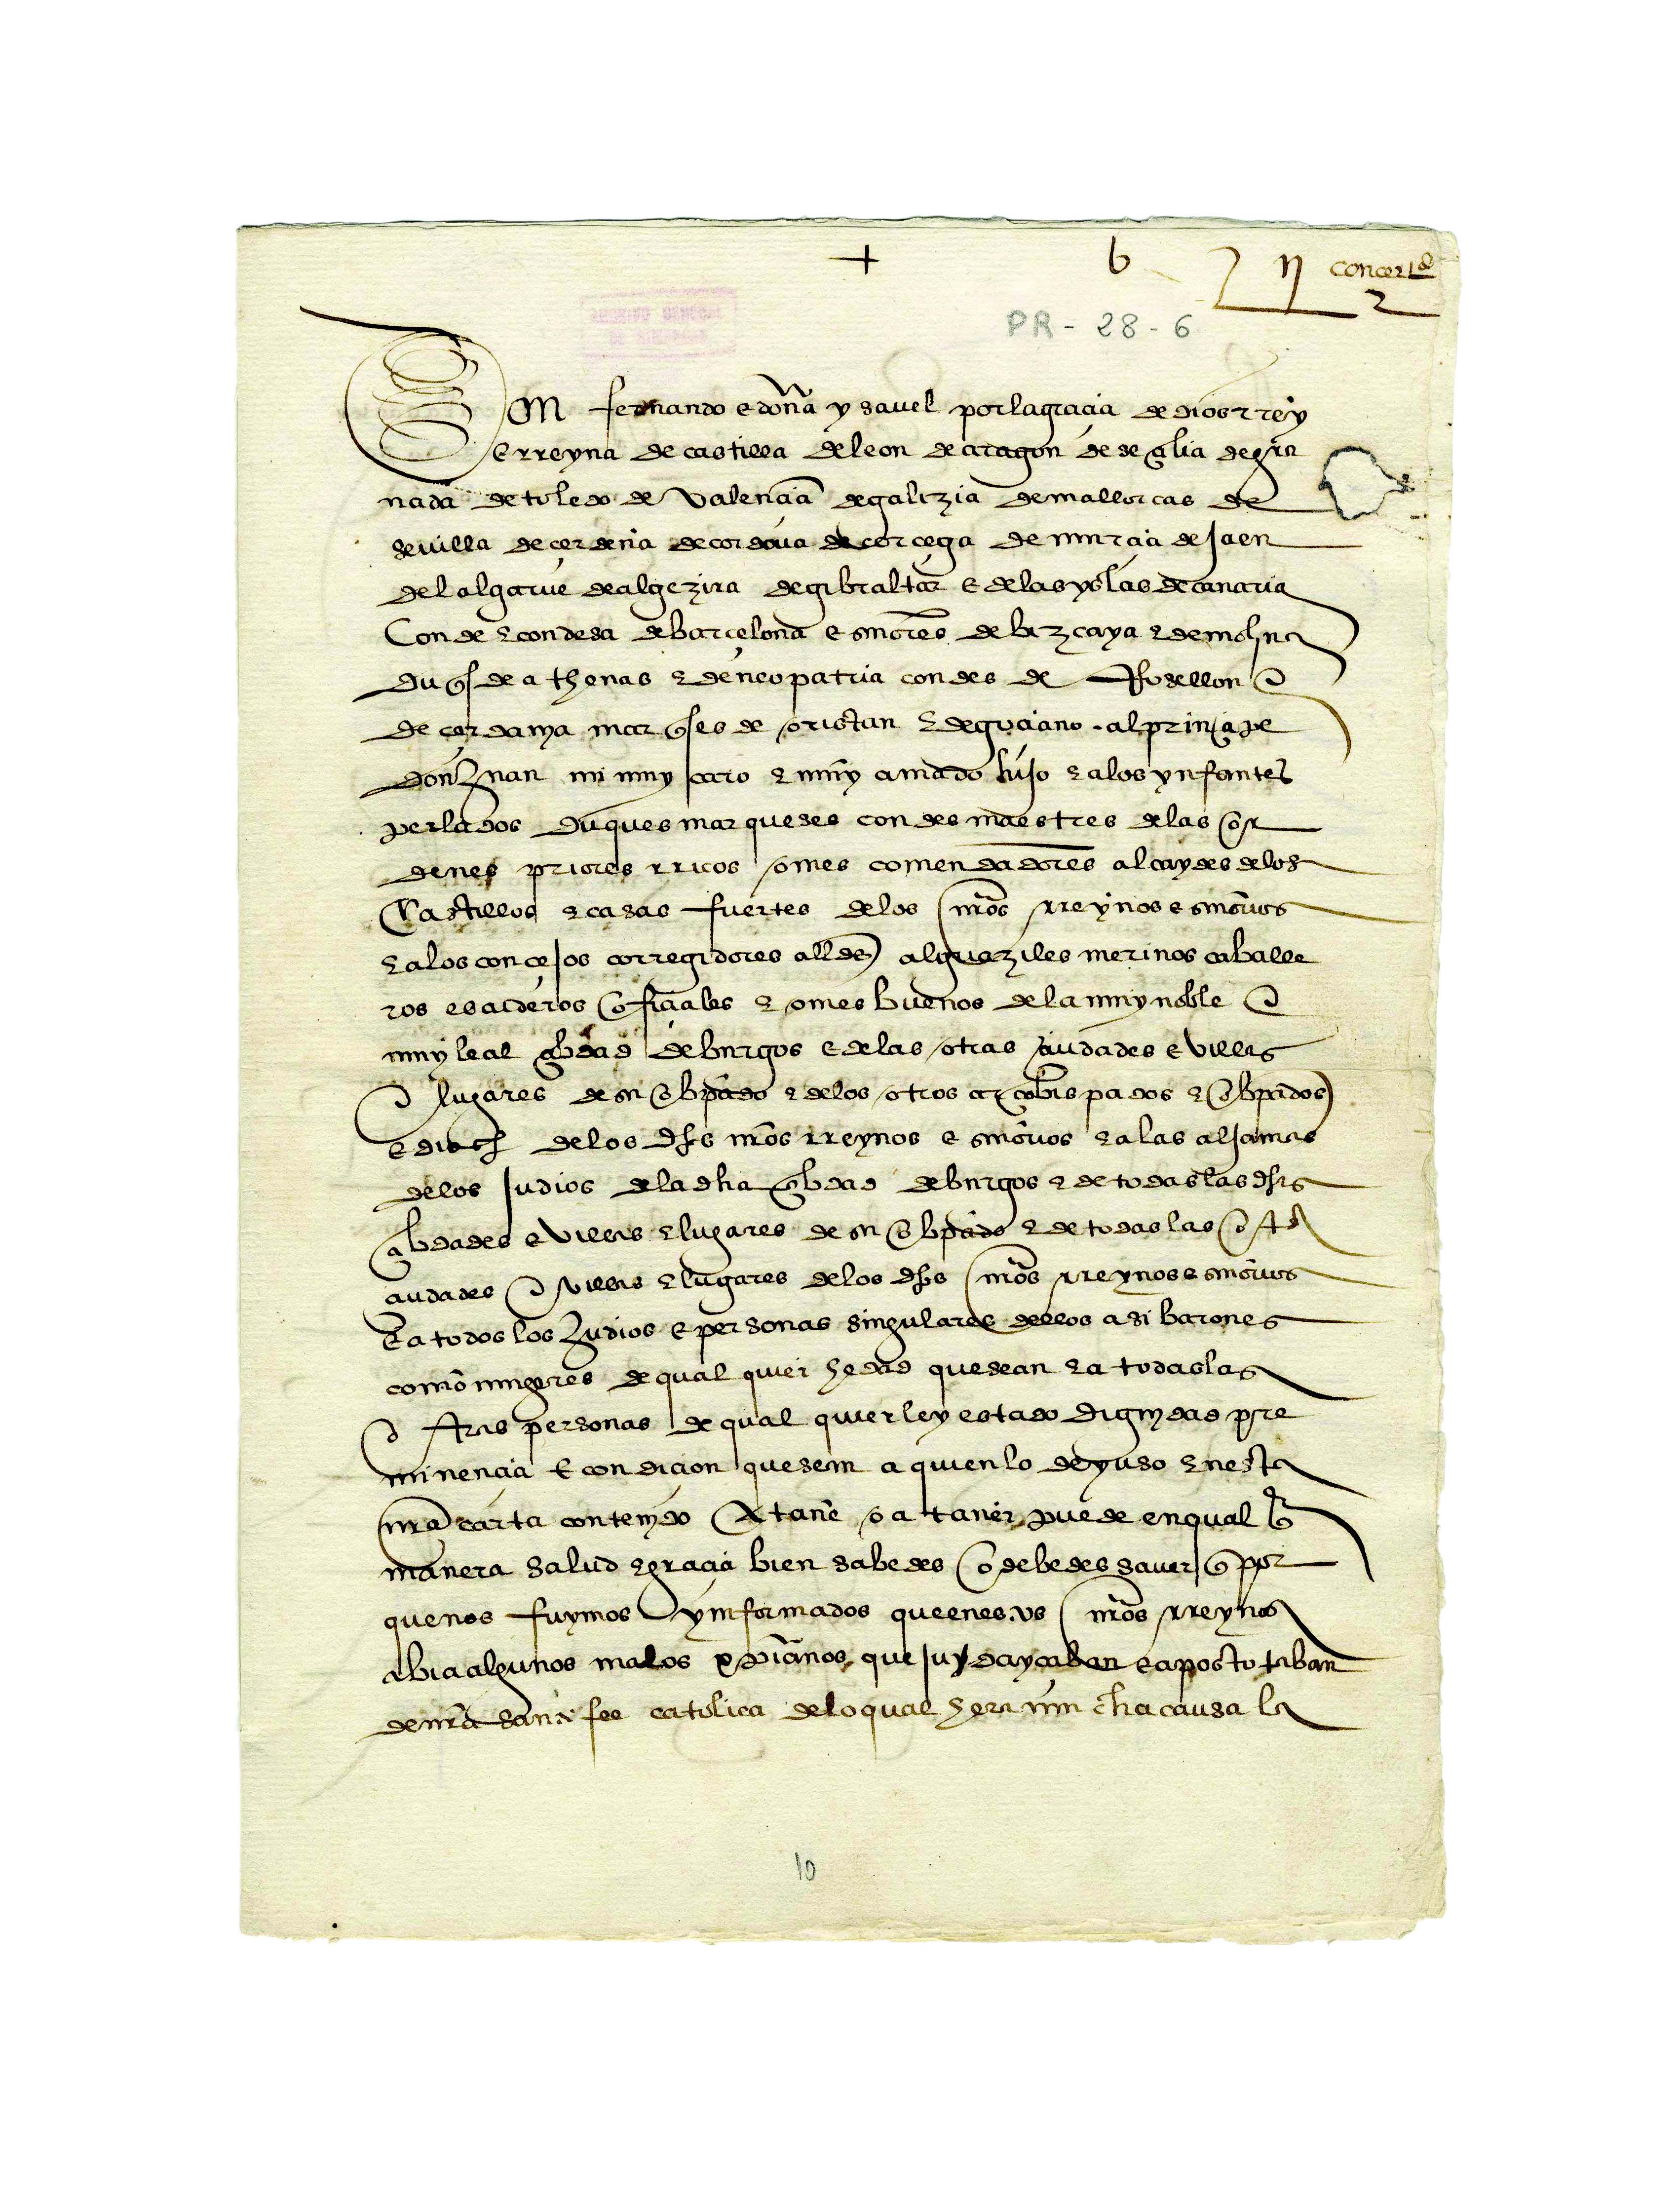 +
6
concertdo
2
PR - 28 - 6
ARCHIVO GENERAL
DE SIMANCAS
Don fernando e doña ysavel por la gracia de dios rrey
e rreyna de castilla de leon de aragon de seçilia de gra
nada de toledo de valencia de galizia de mallorcas de
sevilla de çerdeña de cordova de corcega de murcia de jaen
del algarve de algezira de gibraltar e de las yslas de canaria
Conde e condesa de barçelona e señores de bizcaya e de molina
duqs de athenas e de neopatria condes de Rosellon e
de çerdania marqses de oristan e de goçiano al prinçipe
don Juan mi muy caro e muy amado hijo e a los ynfantes
perlados duques marqueses condes maestres de las or
denes priores rricos omes comendadores alcaydes de los
Castillos e casas fuertes de los nros rreynos e señorios
e a los concejos corregidores alldes alguaziles merinos caballe
ros escuderos ofiçiales e omes buenos de la muy noble e
muy leal çibdad de burgos e de las otras çiudades e villas
e lugares de su obpado e de los otros arçobispados e obpados
e dioçs de los dhos nros rreynos e señorios e a las aljamas
de los judios de la dha çibdad de burgos e de todas las dhas
çibdades e villas e lugares de su obpado e de todas las otras
çiudades e villas e lugares de los dhos nros rreynos e señorios
E a todos los Judios e personas singulares dellos asi barones
como mugeres de qual quier hedad que sean e a todas las
otras personas de qual quier ley estado dignydad pre
minençia e condiçion que sean a quien lo de yuso en esta
nra carta contenydo atañe o atañer puede en qual qr
manera Salud e graçia bien sabedes o debedes saver q por
que nos fuymos ynformados que en estos nros rreynos
abia algunos malos xpianos que judayçaban e apostotaban
de nra santa fee catolica de lo qual hera mucha causa la
10